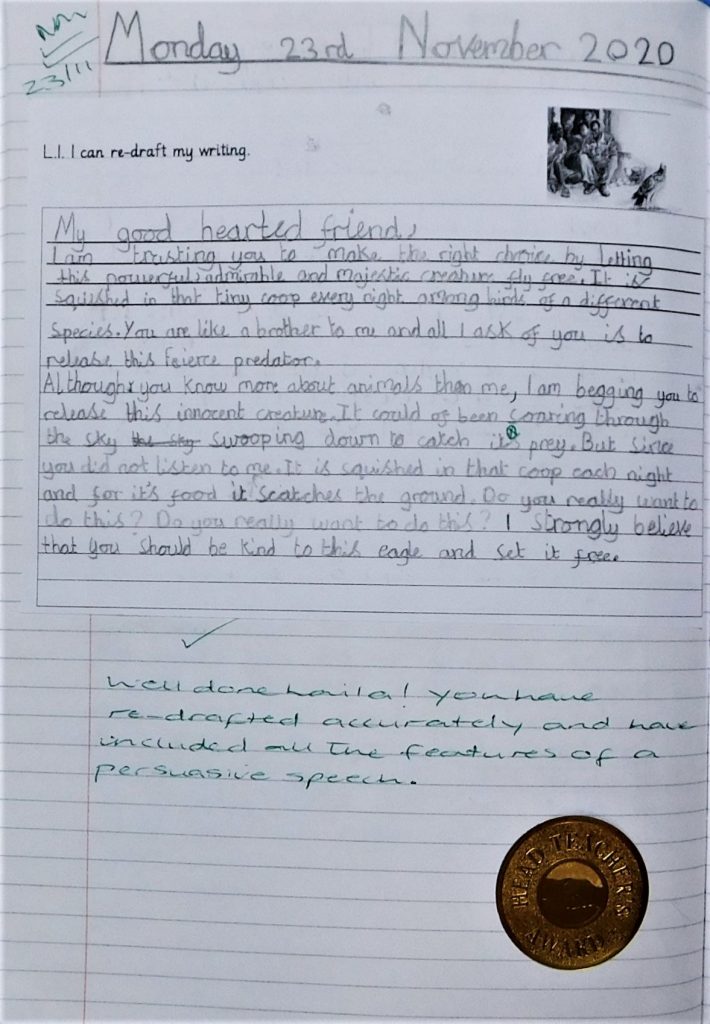 23/11
Monday 23rd November 2020
L.I. I can re-draft my writing.
My good hearted friend,
I am trusting you to make the right choice by letting
this powerful, admirable and majestic creature fly free. It is
squished in that tiny coop every night among birds of a different
species. You are like a brother to me and all I ask of you is to
release this feierce predator.
Although you know more about animals than me, I am begging you to
release this innocent creature. It could of been soaring through
the sky the sky swooping down to catch its prey. But since
you did not listen to me. It is squished in that coop each night
and for it's food it scatches the ground. Do you really want to
do this? Do you really want to do this? I strongly believe
that you should be kind to this eagle and set it free.
Well done Laila! You have
re-drafted accurately and have
included all the features of a
persuasive speech.
HEAD TEACHER'S
AWARD